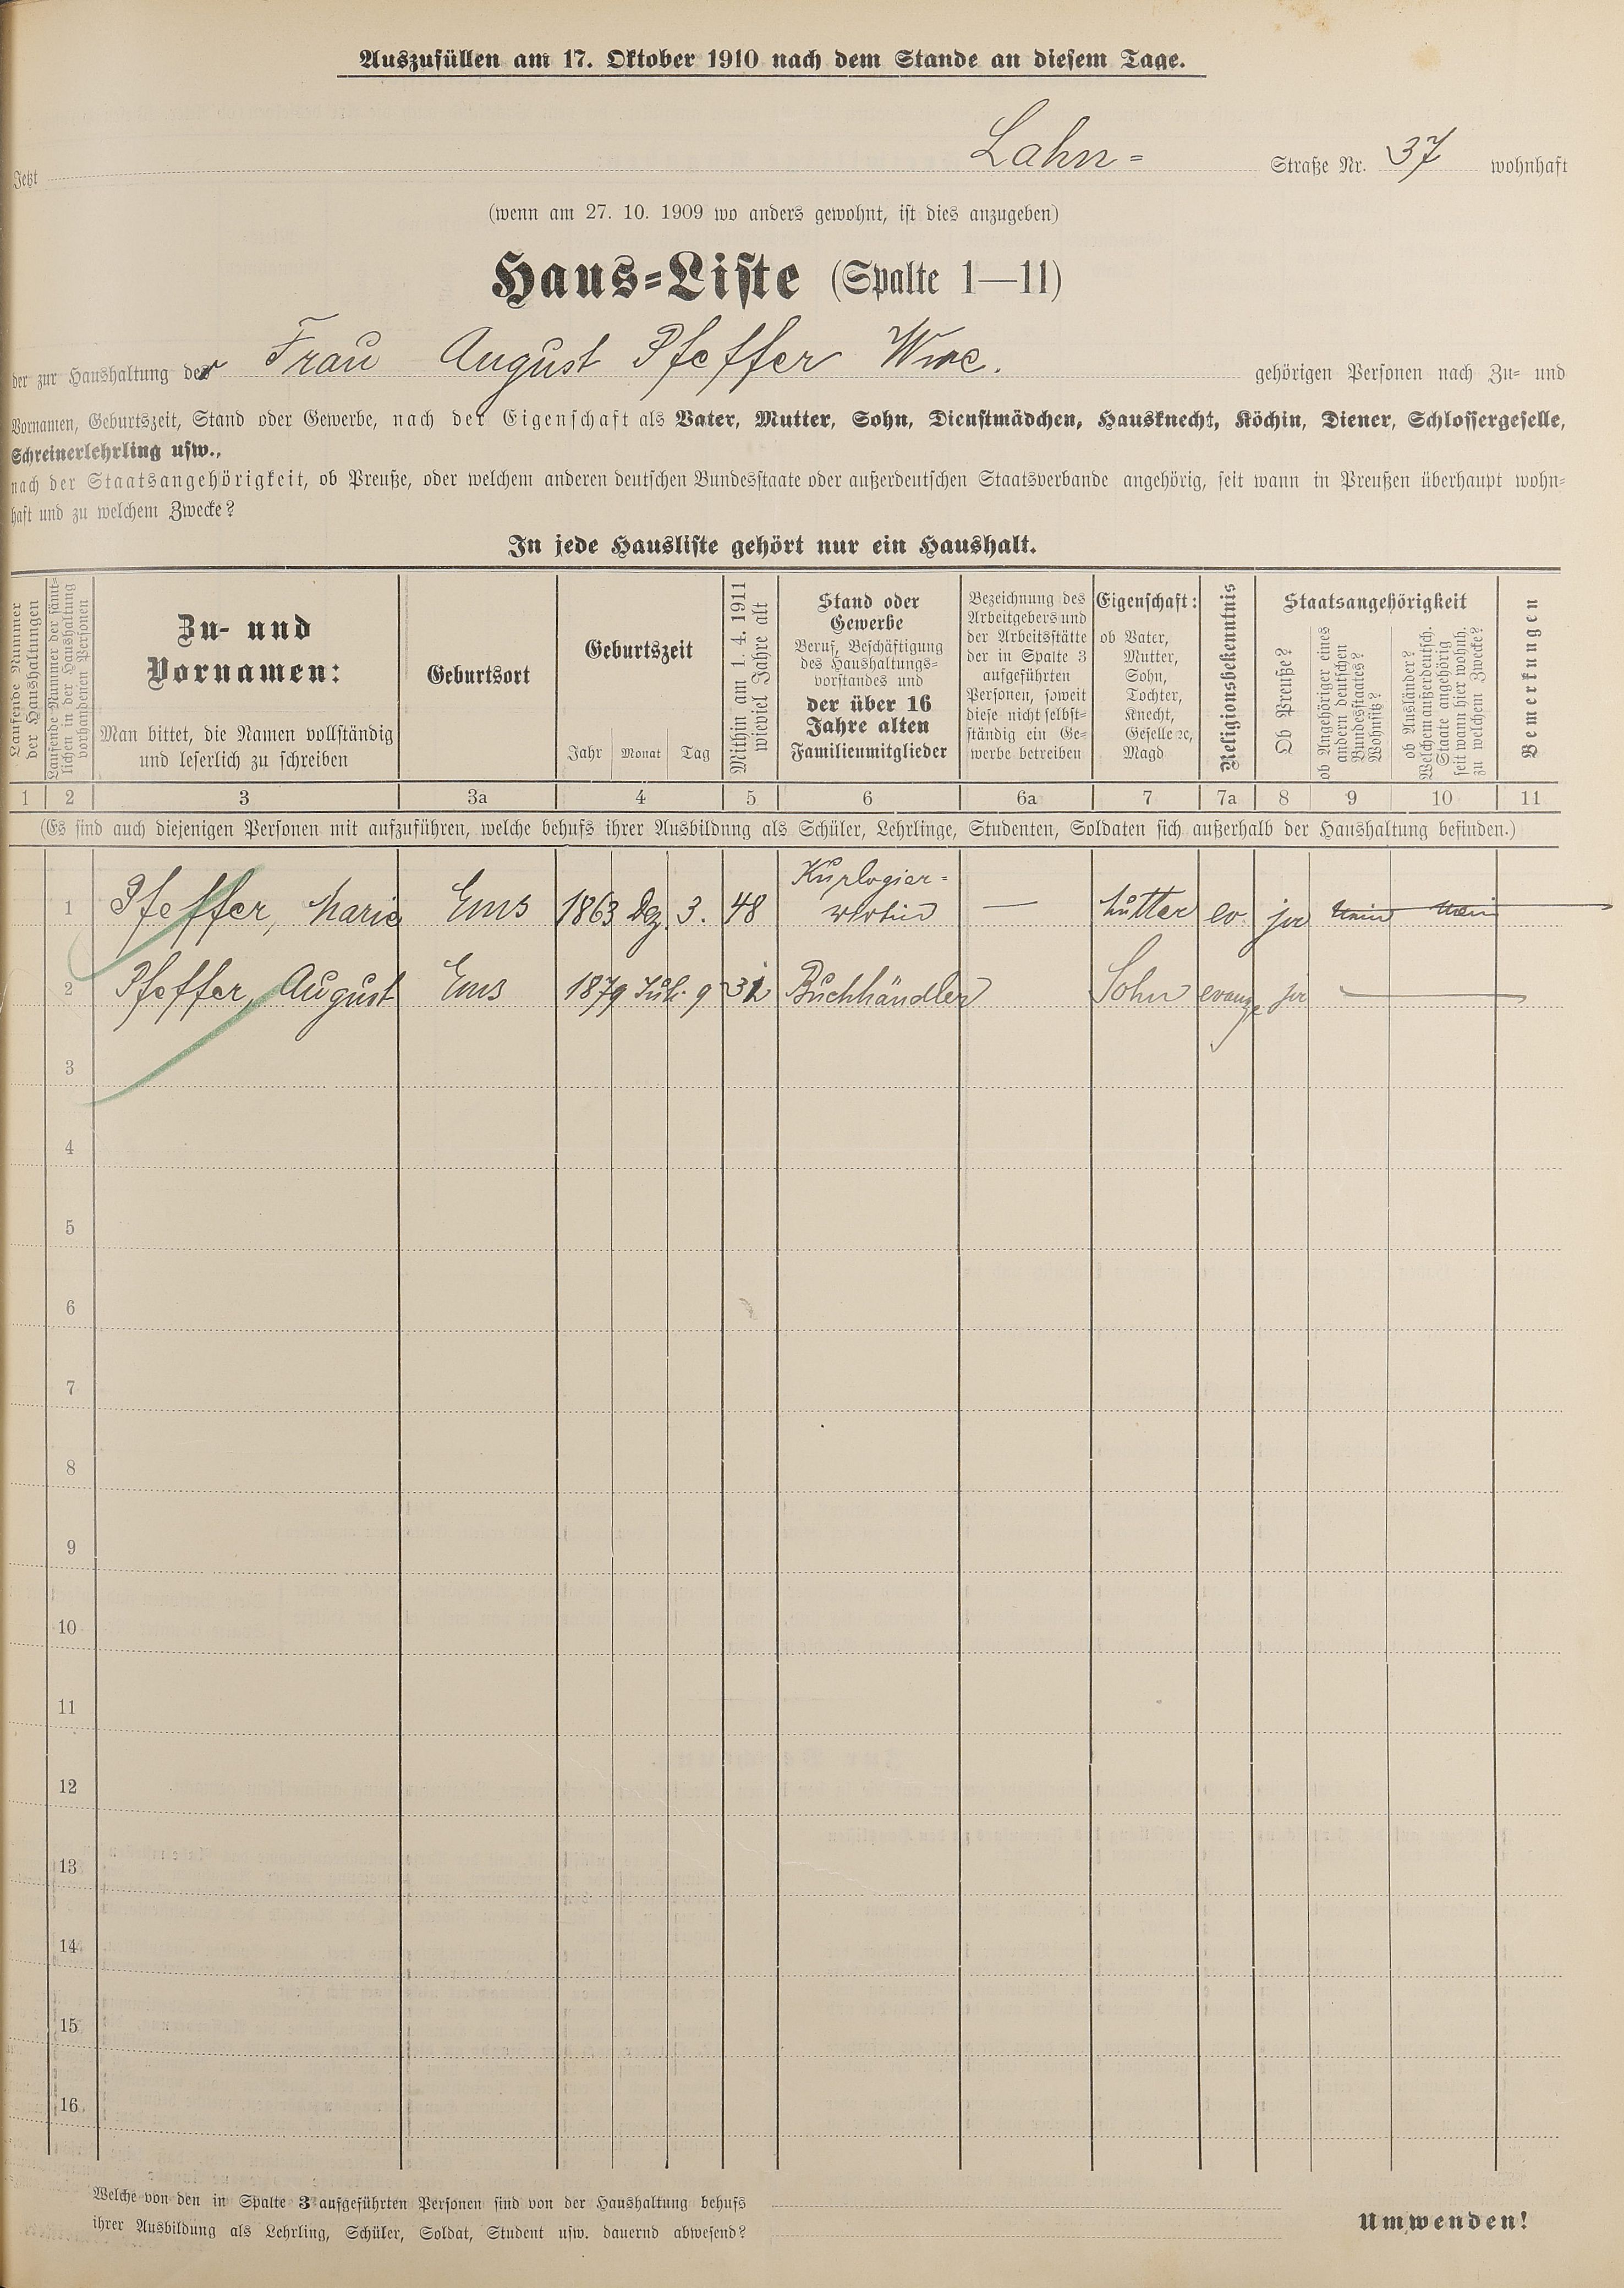 Auszufüllen am 17. Oktober 1910 nach dem Stande an diesem Tage.
Jetzt Lahn= Straße Nr. 37 wohnhaft
(wenn am 27. 10. 1909 wo anders gewohnt, ist dies anzugeben)
Haus=Liste (Spalte 1—11)
der zur Haushaltung der Frau August Pfeffer Wwe. gehörigen Personen nach Zu= und
Vornamen, Geburtszeit, Stand oder Gewerbe, nach der Eigenschaft als Vater, Mutter, Sohn, Dienstmädchen, Hausknecht, Köchin, Diener, Schlossergeselle,
Schreinerlehrling usw.,
nach der Staatsangehörigkeit, ob Preuße, oder welchem anderen deutschen Bundesstaate oder außerdeutschen Staatsverbande angehörig, seit wann in Preußen überhaupt wohn=
haft und zu welchem Zwecke?
In jede Hausliste gehört nur ein Haushalt.
Laufende Nummer
der Haushaltungen
Laufende Nummer der sämt=
lichen in der Haushaltung
vorhandenen Personen
Zu- und
Vornamen:
Man bittet, die Namen vollständig
und leserlich zu schreiben
Geburtsort
Geburtszeit
Jahr Monat Tag
Mithin am 1. 4. 1911
wieviel Jahre alt
Stand oder
Gewerbe
Beruf, Beschäftigung
des Haushaltungs=
vorstandes und
der über 16
Jahre alten
Familienmitglieder
Bezeichnung des
Arbeitgebers und
der Arbeitsstätte
der in Spalte 3
aufgeführten
Personen, soweit
diese nicht selbst=
ständig ein Ge=
werbe betreiben
Eigenschaft:
ob Vater,
Mutter,
Sohn,
Tochter,
Knecht,
Geselle ec,
Magd
Religionsbekenntnis
Staatsangehörigkeit
Ob Preuße?
ob Angehöriger eines
andern deutschen
Bundesstaates?
Wohnsitz?
ob Ausländer?
Welchem außerdeutsch.
Staate angehörig
seit wann hier wohnh.
zu welchem Zwecke?
Bemerkungen
1 2 3 3a 4 5 6 6a 7 7a 8 9 10 11
(Es sind auch diejenigen Personen mit aufzuführen, welche behufs ihrer Ausbildung als Schüler, Lehrlinge, Studenten, Soldaten sich außerhalb der Haushaltung befinden.)
Kurlogier=
1 Pfeffer, Marie Ems 1863 Dez. 3. 48 wirtin — Mutter ev. ja nein nein
2 Pfeffer, August Ems 1879 Juli 9 31 Buchhändler Sohn evang ja —
3
4
5
6
7
8
9
10
11
12
13
14
15
16
Welche von den in Spalte 3 aufgeführten Personen sind von der Haushaltung behufs
ihrer Ausbildung als Lehrling, Schüler, Soldat, Student usw. dauernd abwesend?
Umwenden!